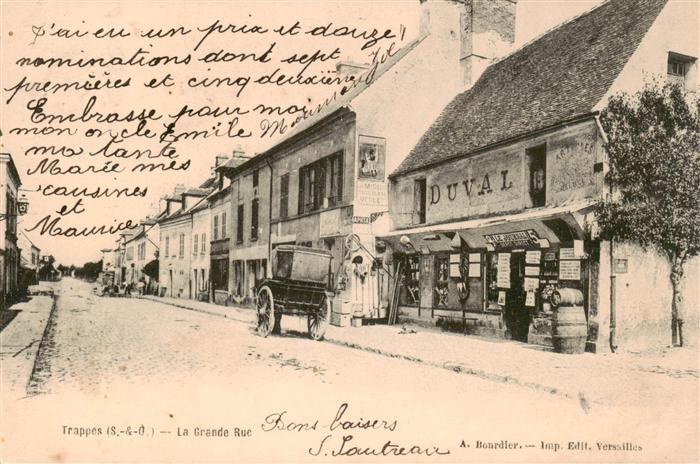 J'ai eu un prix et douze
nominations dont sept
premières et cinq deuxièmes
Embrasse pour moi
mon oncle Emile
ma tante
Marée mes
cousines
et
Maurice
DUVAL
LE JOURNAL
Bons baisers
S. Lautreau
Trappes (S.-&-O.) — La Grande Rue
A. Bourdier. — Imp. Edit. Versailles